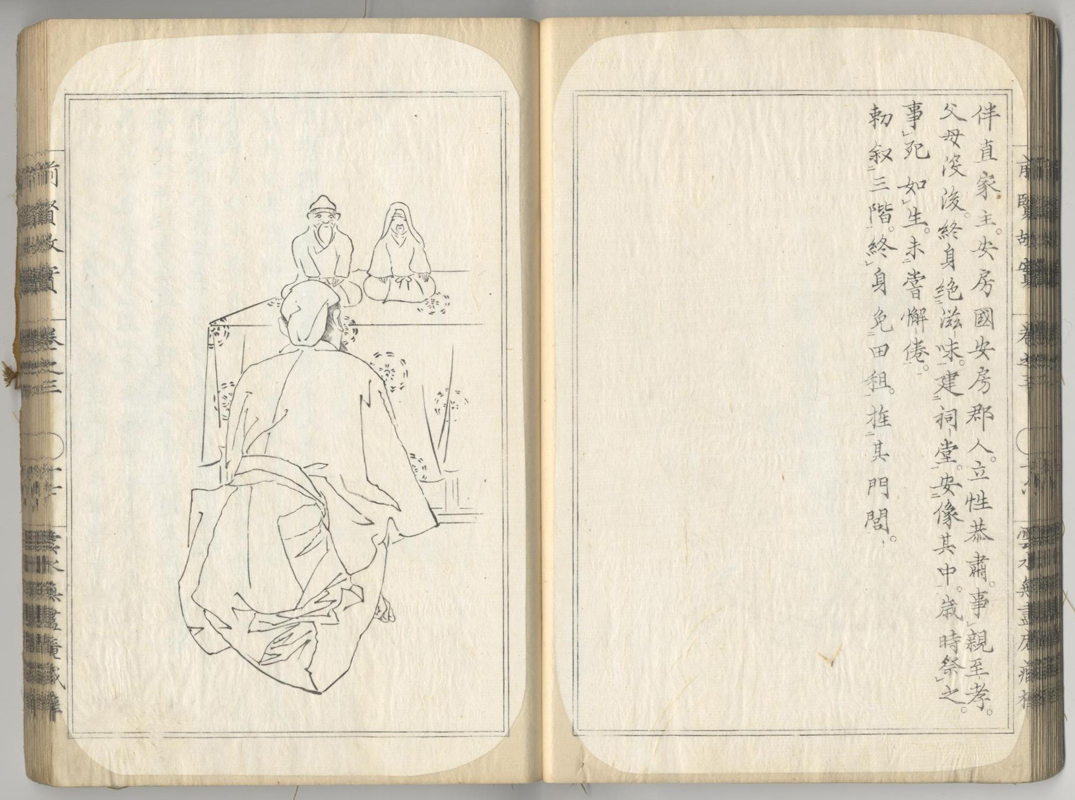 伴直家主。安房國安房郡人。立性恭肅。事親至孝。
父母沒後。終身絶滋味。建祠堂。安像其中。歳時祭之。
事死如生。未嘗懈倦。
勅叙三階。終身免田租。旌其門閭。
前賢故實
卷之三
前賢故實
卷之三